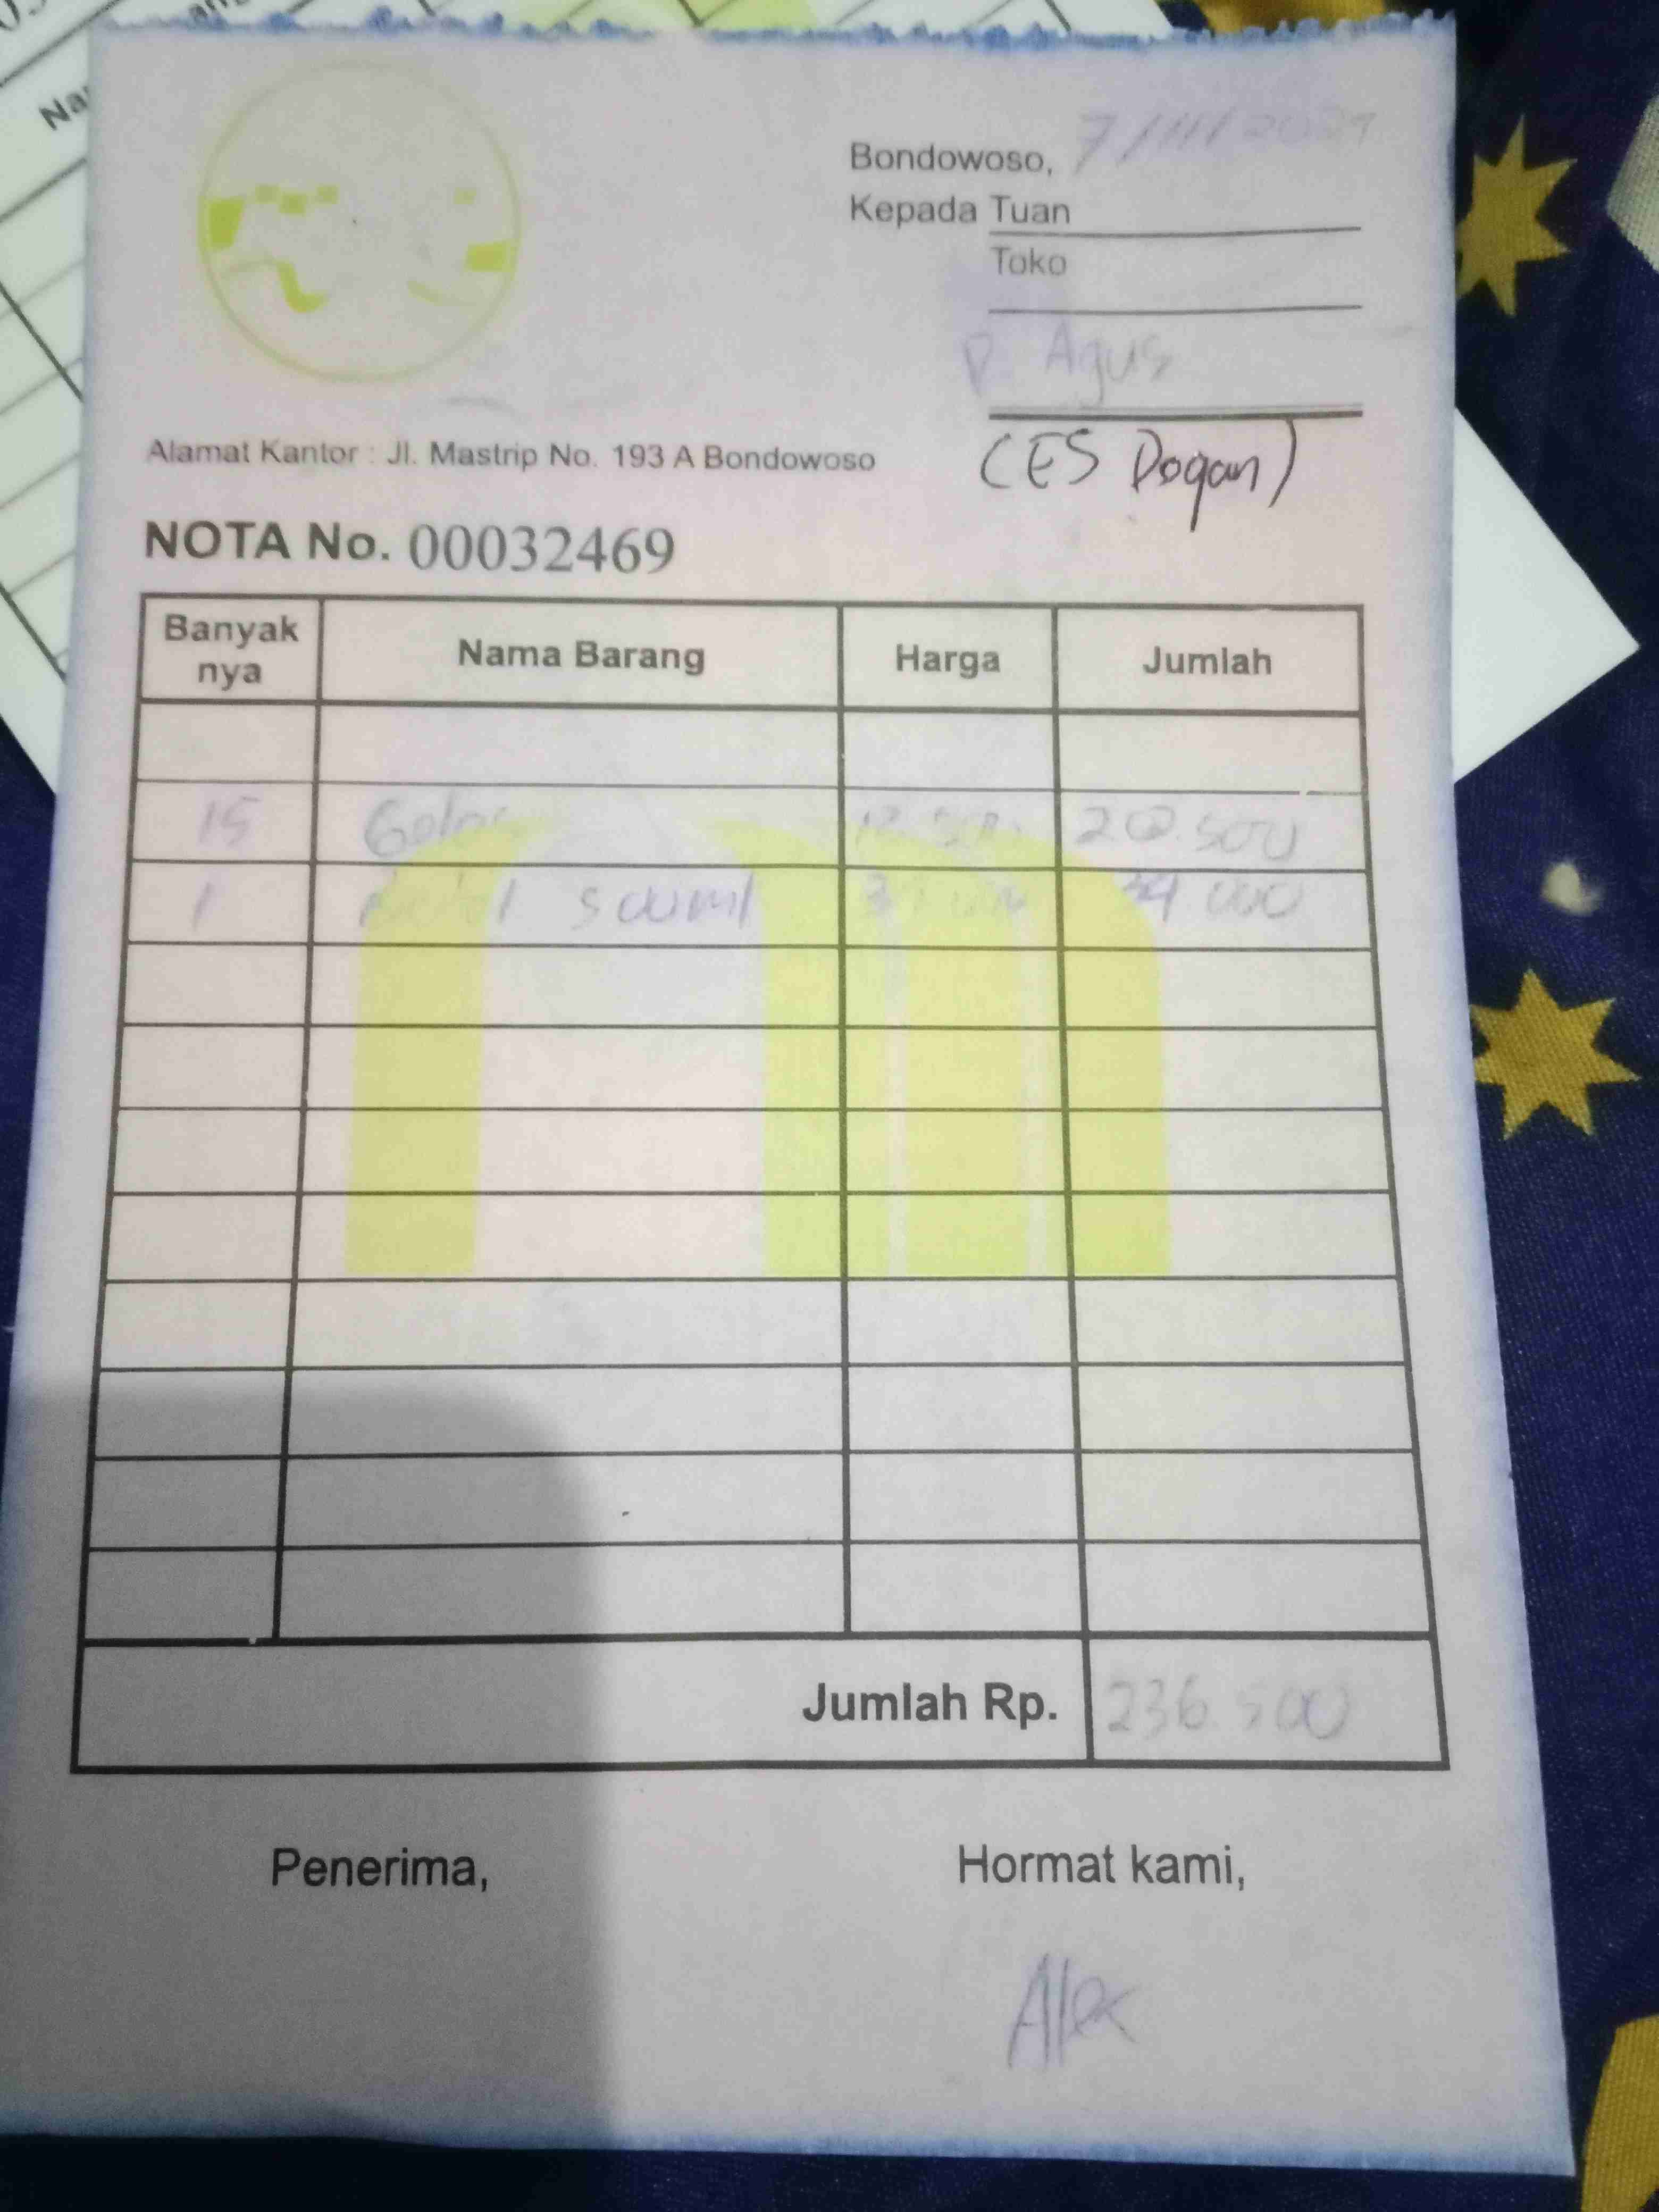 Bondowoso, 7/11/202
Kepada Tuan
Toko
P. Agus
(ES Dogan)
Alamat Kantor : Jl. Mastrip No. 193 A Bondowoso
NOTA No. 00032469
Banyak nya Nama Barang Harga Jumlah
15 202.500
1 500ml 34.000
Jumlah Rp. 236.500
Penerima, Hormat kami,
Alex